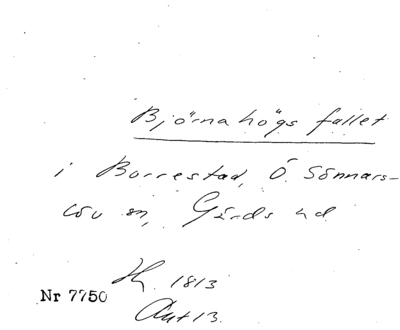 Björnahögs fallet
i Borrestad, Ö. Sönnars-
löv sn, Gärds hd
H. 1813
Nr 7750
Avt 13.